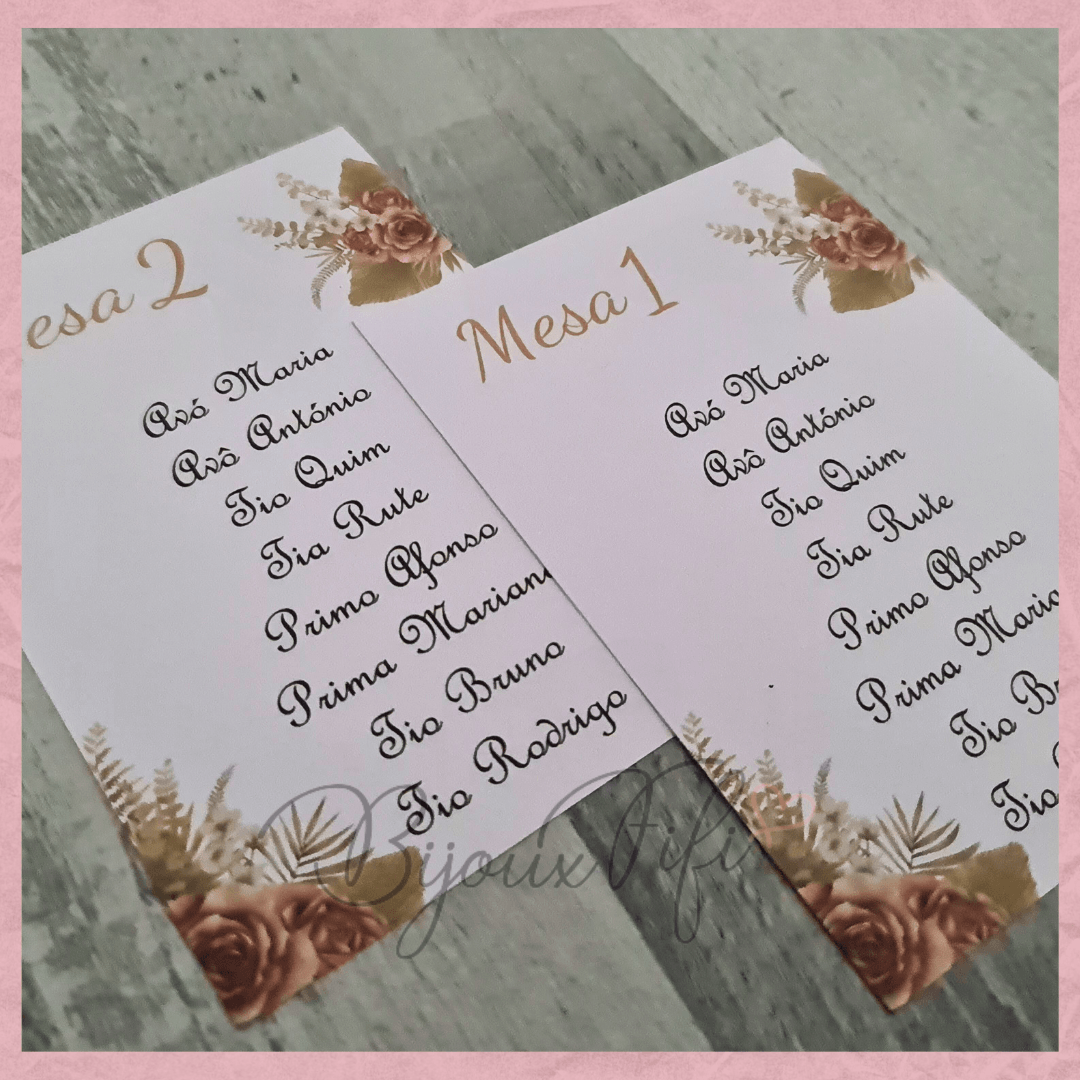 esa 2
Avó Maria
Avô António
Tio Quim
Tia Rute
Primo Afonso
Prima Mariana
Tio Bruno
Tio Rodrigo
Mesa 1
Avó Maria
Avô António
Tio Quim
Tia Rute
Primo Afonso
Prima Maria
Tio Br
Tio
BijouxFifis